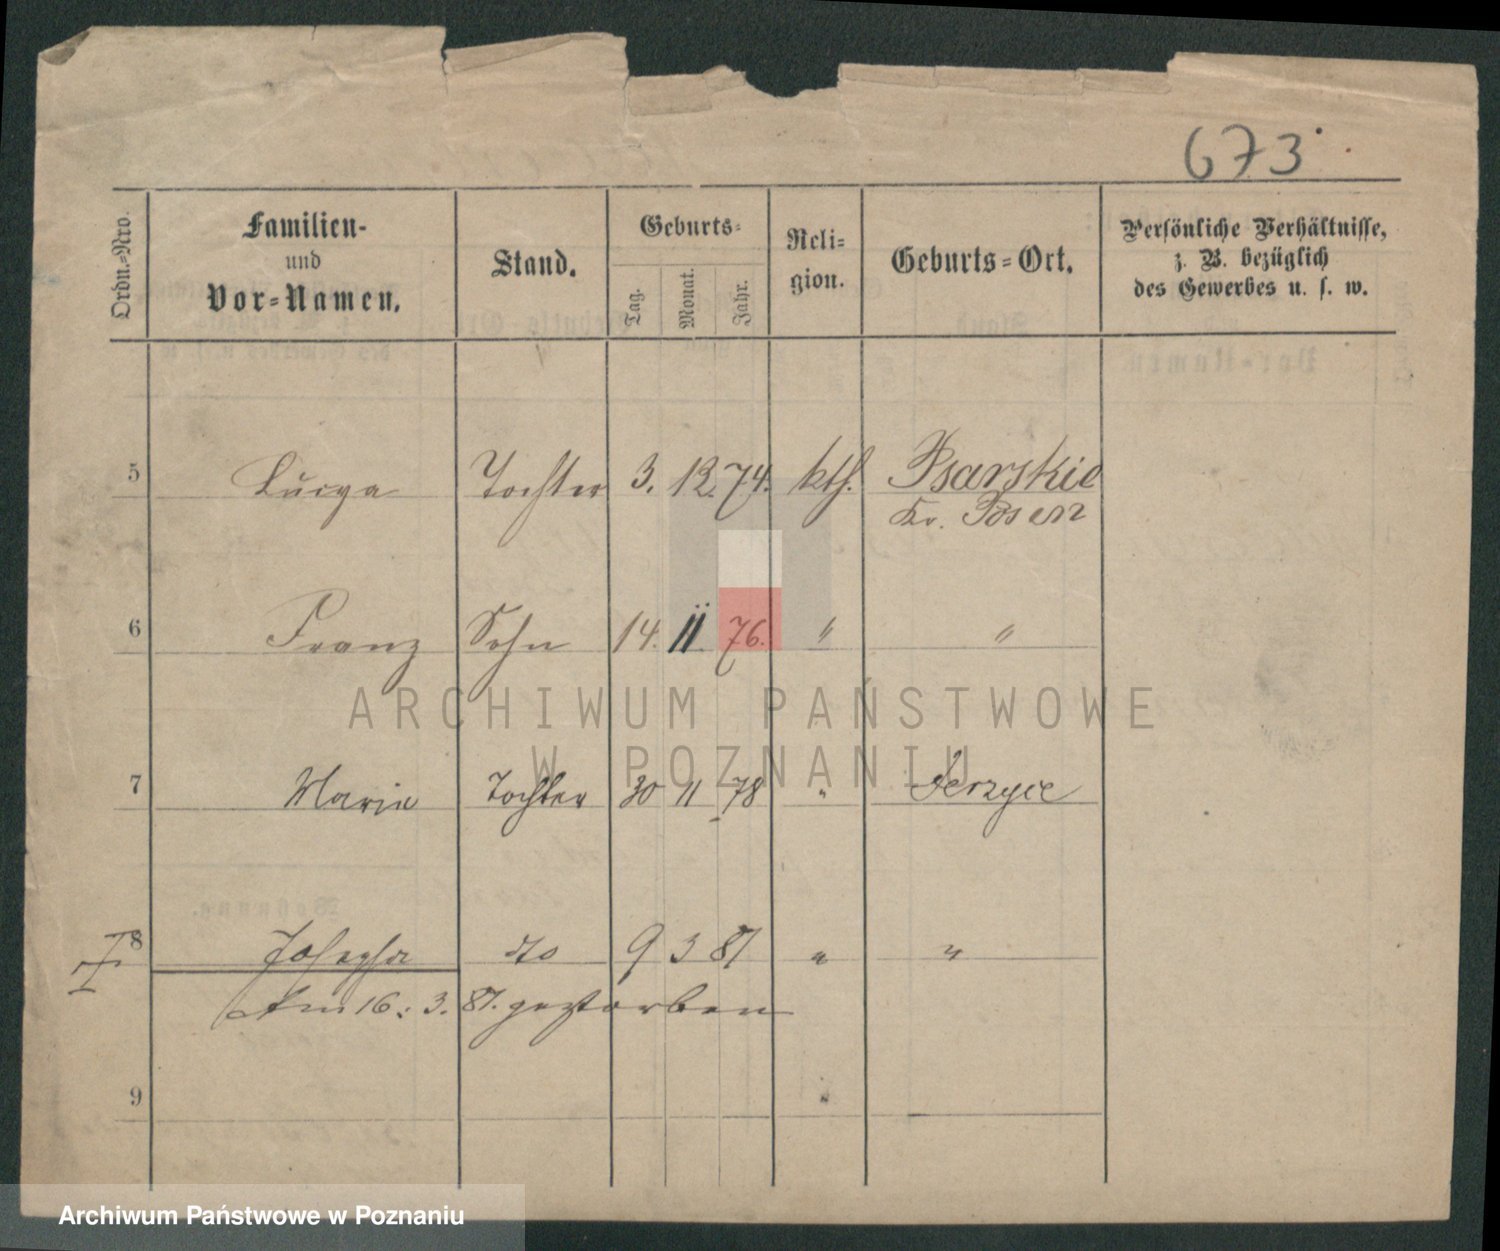 673
Ordn.-Nro.
Familien-
und
Vor-Namen.
Stand.
Geburts-
Tag.
Monat.
Jahr.
Reli-
gion.
Geburts-Ort.
Persönliche Verhältnisse,
z. B. bezüglich
des Gewerbes u. s. w.
5 Lucya Tochter 3. 12. 74. kth. Psarskie
Kr. Posen
6 Franz Sohn 14. 11 76. " "
7 Marie Tochter 30 11 78 " Jerzyce
8 Josepha dto 9 3 87 " "
Am 16. 3. 87. gestorben
9
ARCHIWUM PAŃSTWOWE
W POZNANIU
Archiwum Państwowe w Poznaniu